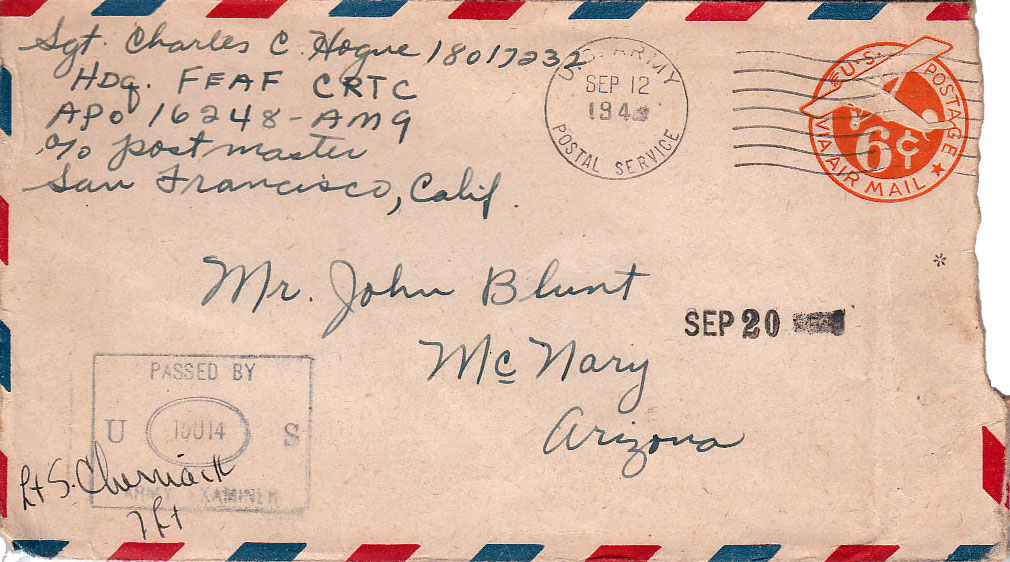 Sgt. Charles C. Hogue 18017232
Hdq. FEAF CRTC
APO 16248-AMG
c/o postmaster
San Francisco, Calif.
U.S. ARMY
SEP 12
194
POSTAL SERVICE
U.S. POSTAGE
6¢
VIA AIR MAIL
Mr. John Blunt
McNary
Arizona
SEP 20
PASSED BY
U S
ARMY EXAMINER
Lt S.